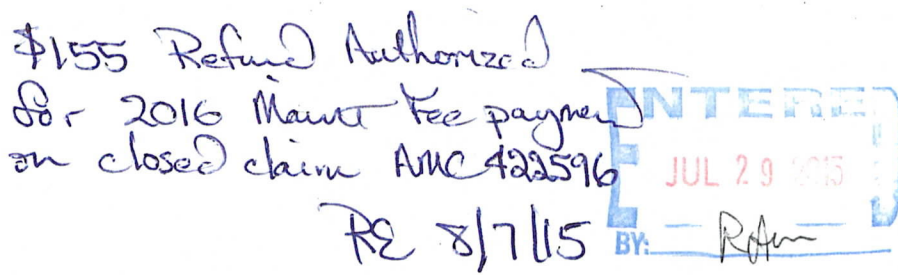 $155 Refund Authorized
for 2016 Maint Fee payment
on closed claim AMC 422596
RE 8/7/15
ENTERED
JUL 29 2015
BY: